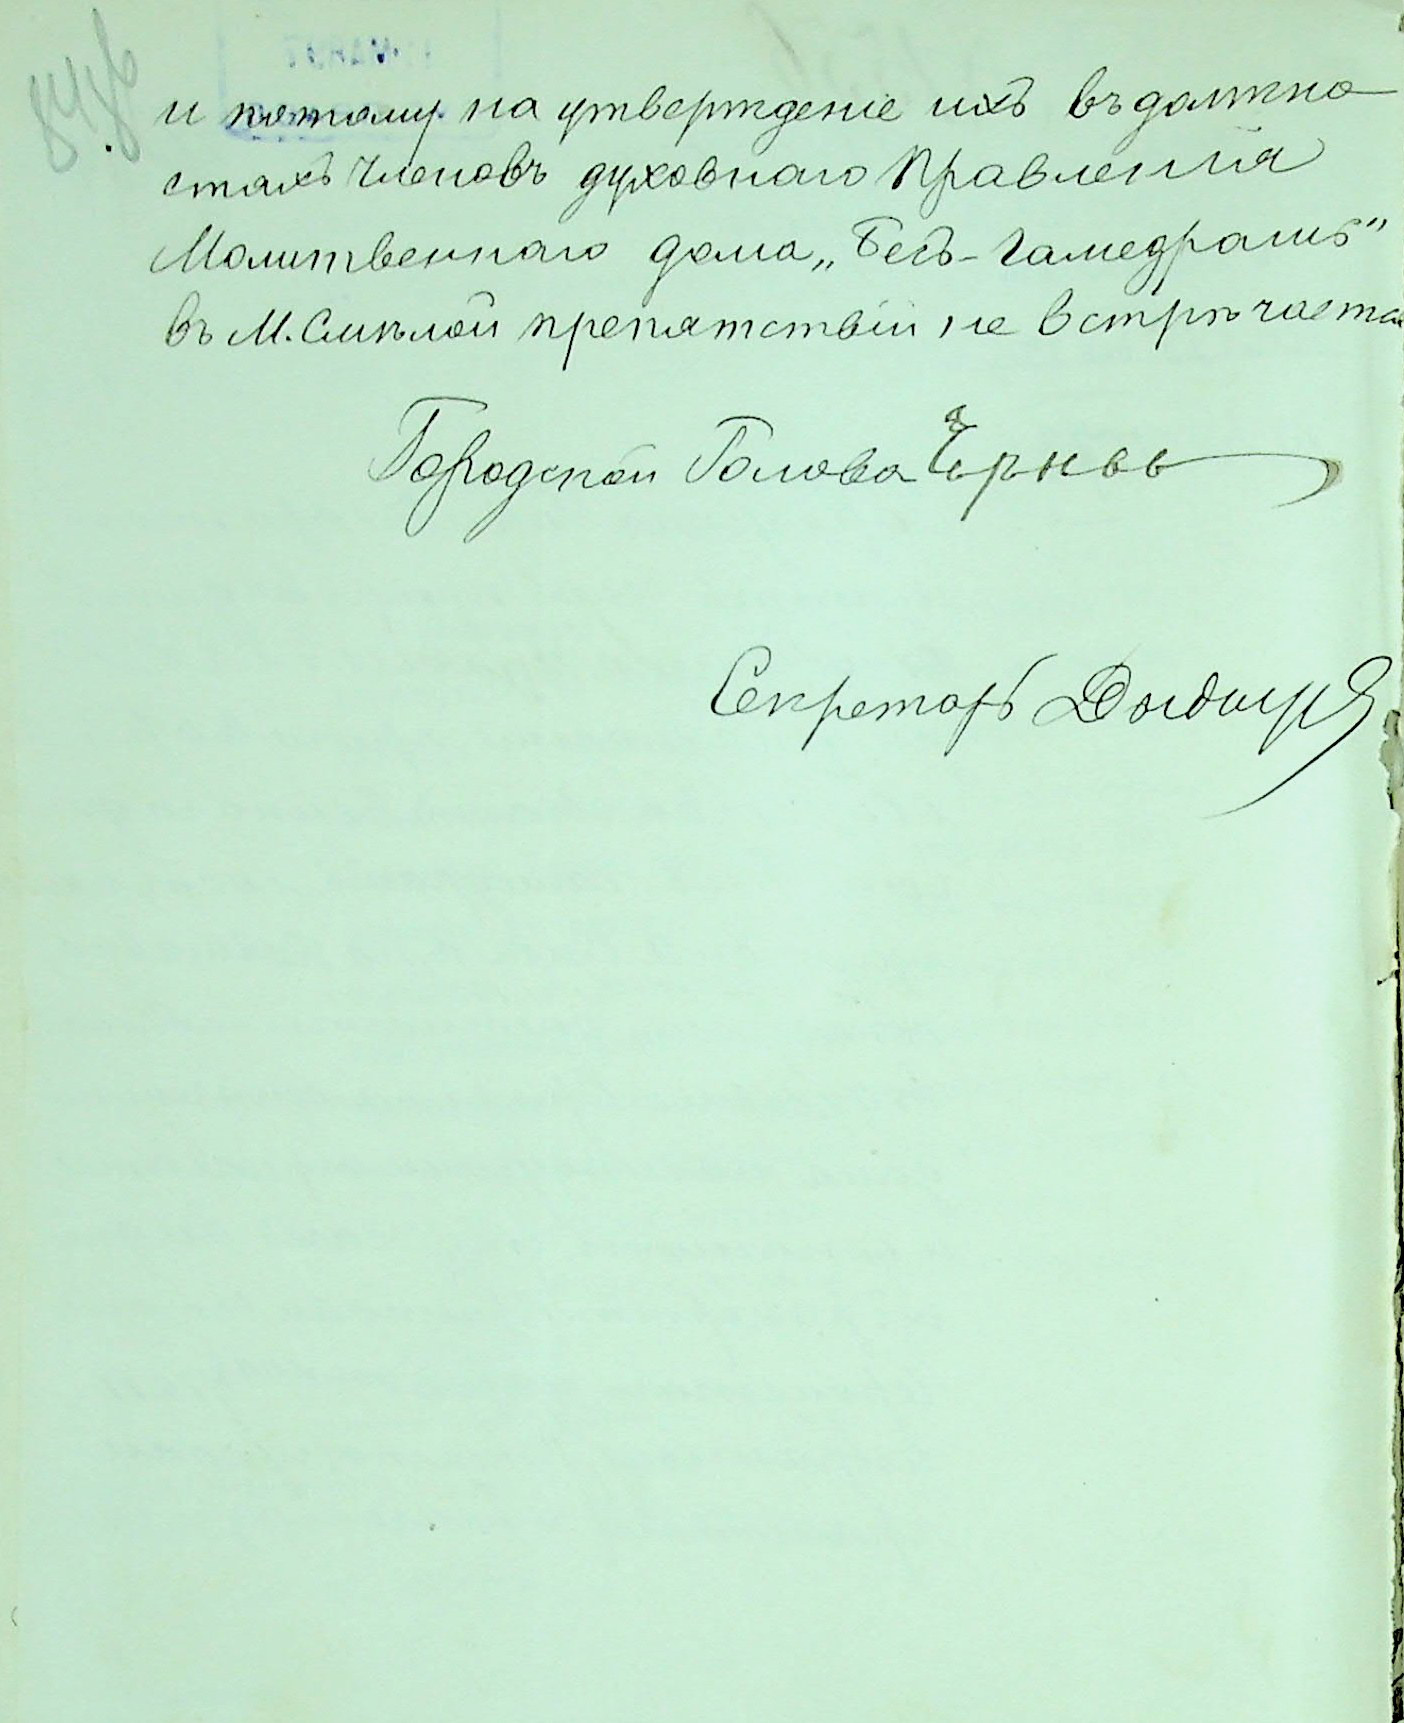 и потому на утвержденіе ихъ въ должно
стяхъ Членовъ духовнаго Правленія
Молитвеннаго дома „Бесъ-Гамедрашъ"
въ М. Смѣлой препятствій не встрѣчается
Городской Голова
Секретарь